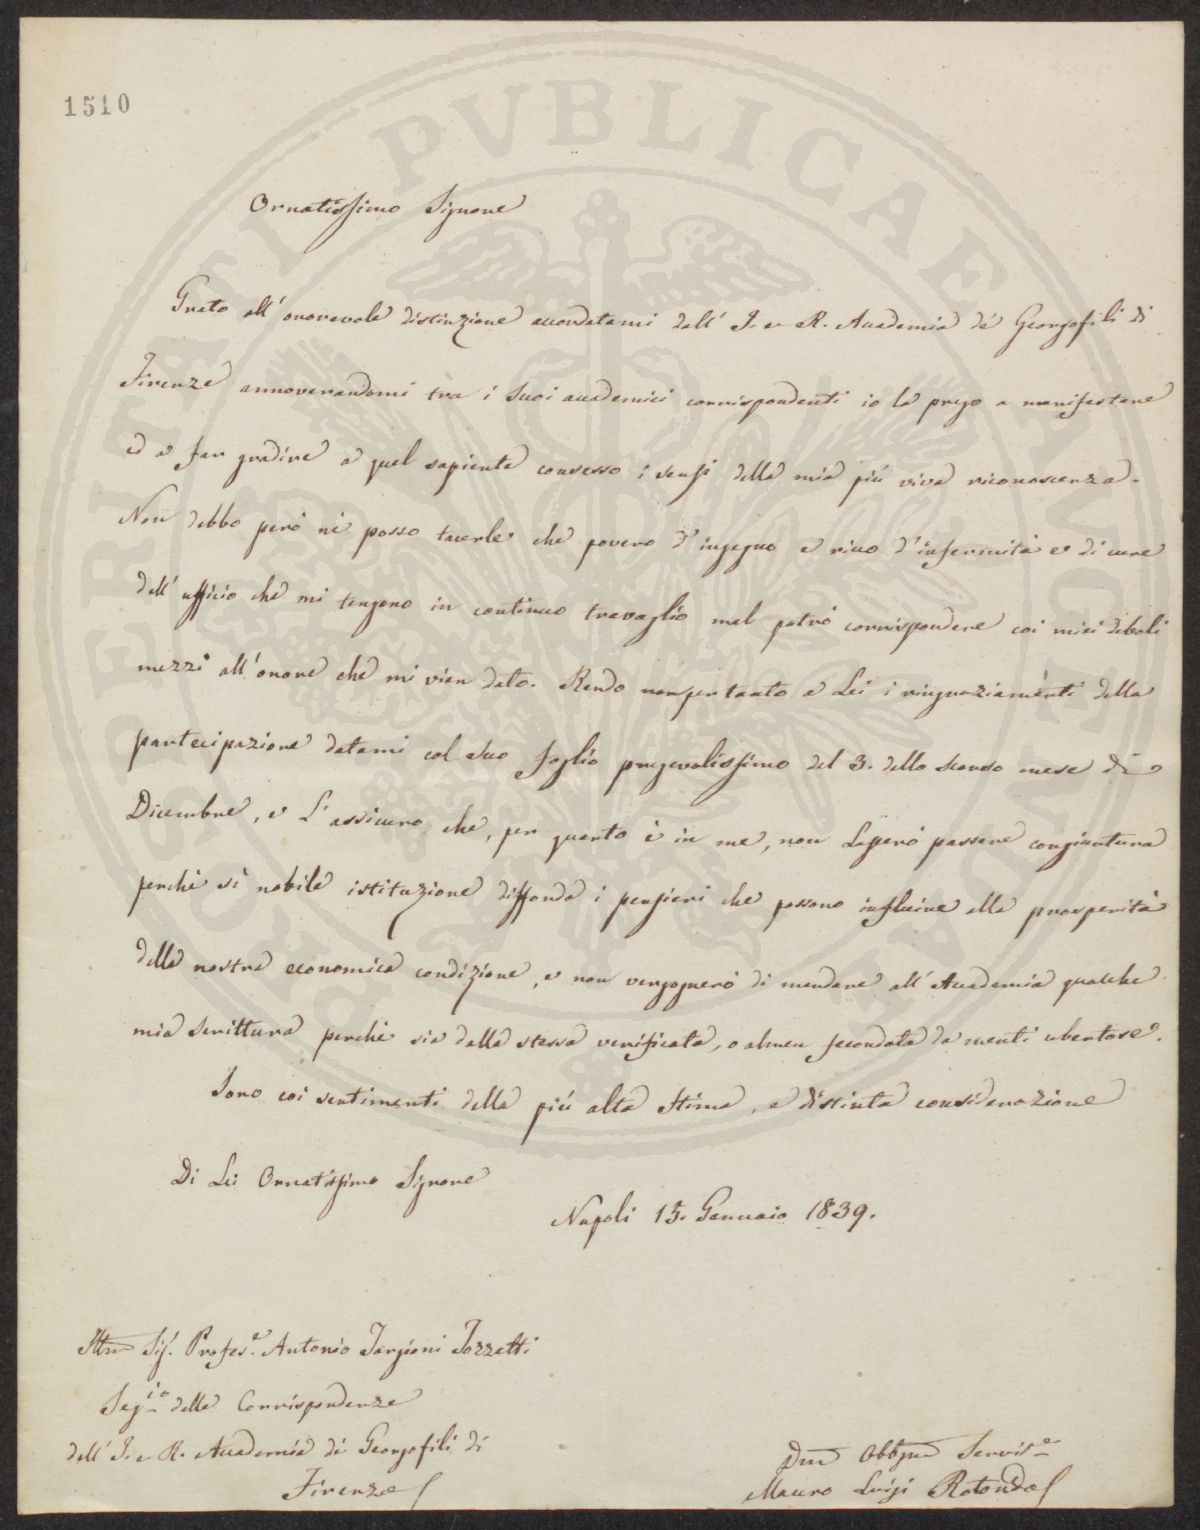 1510
Ornatissimo Signore
Grato all' onorevole distinzione accordatami dall' I. e R. Accademia de' Georgofili di
Firenze annoverandomi tra i suoi accademici corrispondenti io la prego a manifestare
ed a far gradire a quel sapiente consesso i sensi della mia più viva riconoscenza.
Non debbo però nè posso tacerle che povero d' ingegno e ricco d' infermità e di cure
dell' ufficio che mi tengono in continuo travaglio mal potrò corrispondere coi miei deboli
mezzi all' onore che mi vien dato. Rendo nonpertanto a Lei i ringraziamenti della
partecipazione datami col suo foglio pregevolissimo del 3. dello scorso mese di
Dicembre, e L' assicuro che, per quanto è in me, non lascerò passare congiuntura
perchè sì nobile istituzione diffonda i pensieri che possono influire alla prosperità
della nostra economica condizione, e non vergognerò di mandare all' Accademia qualche
mia scrittura perchè sia dalla stessa verificata, o almen fecondata da menti ubertose.
Sono coi sentimenti della più alta stima, e distinta considerazione
Di Lei Ornatissimo Signore
Napoli 15. Gennaio 1839.
Sig. Profes.e Antonio Targioni Tozzetti
Seg.rio delle Corrispondenze
dell' I. e R. Accademia de' Georgofili di
Firenze
Dmo Obbmo Servit.e
Mauro Luigi Rotondo
PROSPERITATI PVBLICAE AVGENDAE